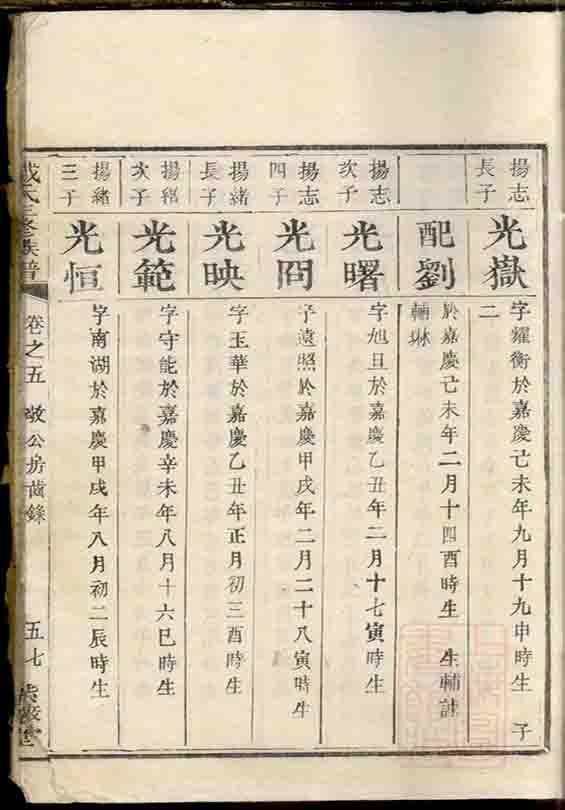 揚志長子
光嶽
字耀衡於嘉慶己未年九月十九申時生 子二
配劉
於嘉慶己未年二月十四酉時生 生輔誌輔琳
揚志次子
光曙
字旭旦於嘉慶乙丑年二月十七寅時生
揚志四子
光冏
字遠照於嘉慶甲戌年二月二十八寅時生
揚緒長子
光映
字玉華於嘉慶乙丑年正月初三酉時生
揚緒次子
光範
字守能於嘉慶辛未年八月十六巳時生
揚緒三子
光恒
字南湖於嘉慶甲戌年八月初二辰時生
氏三修族譜
卷之五
敬公房齒錄
五七
堂